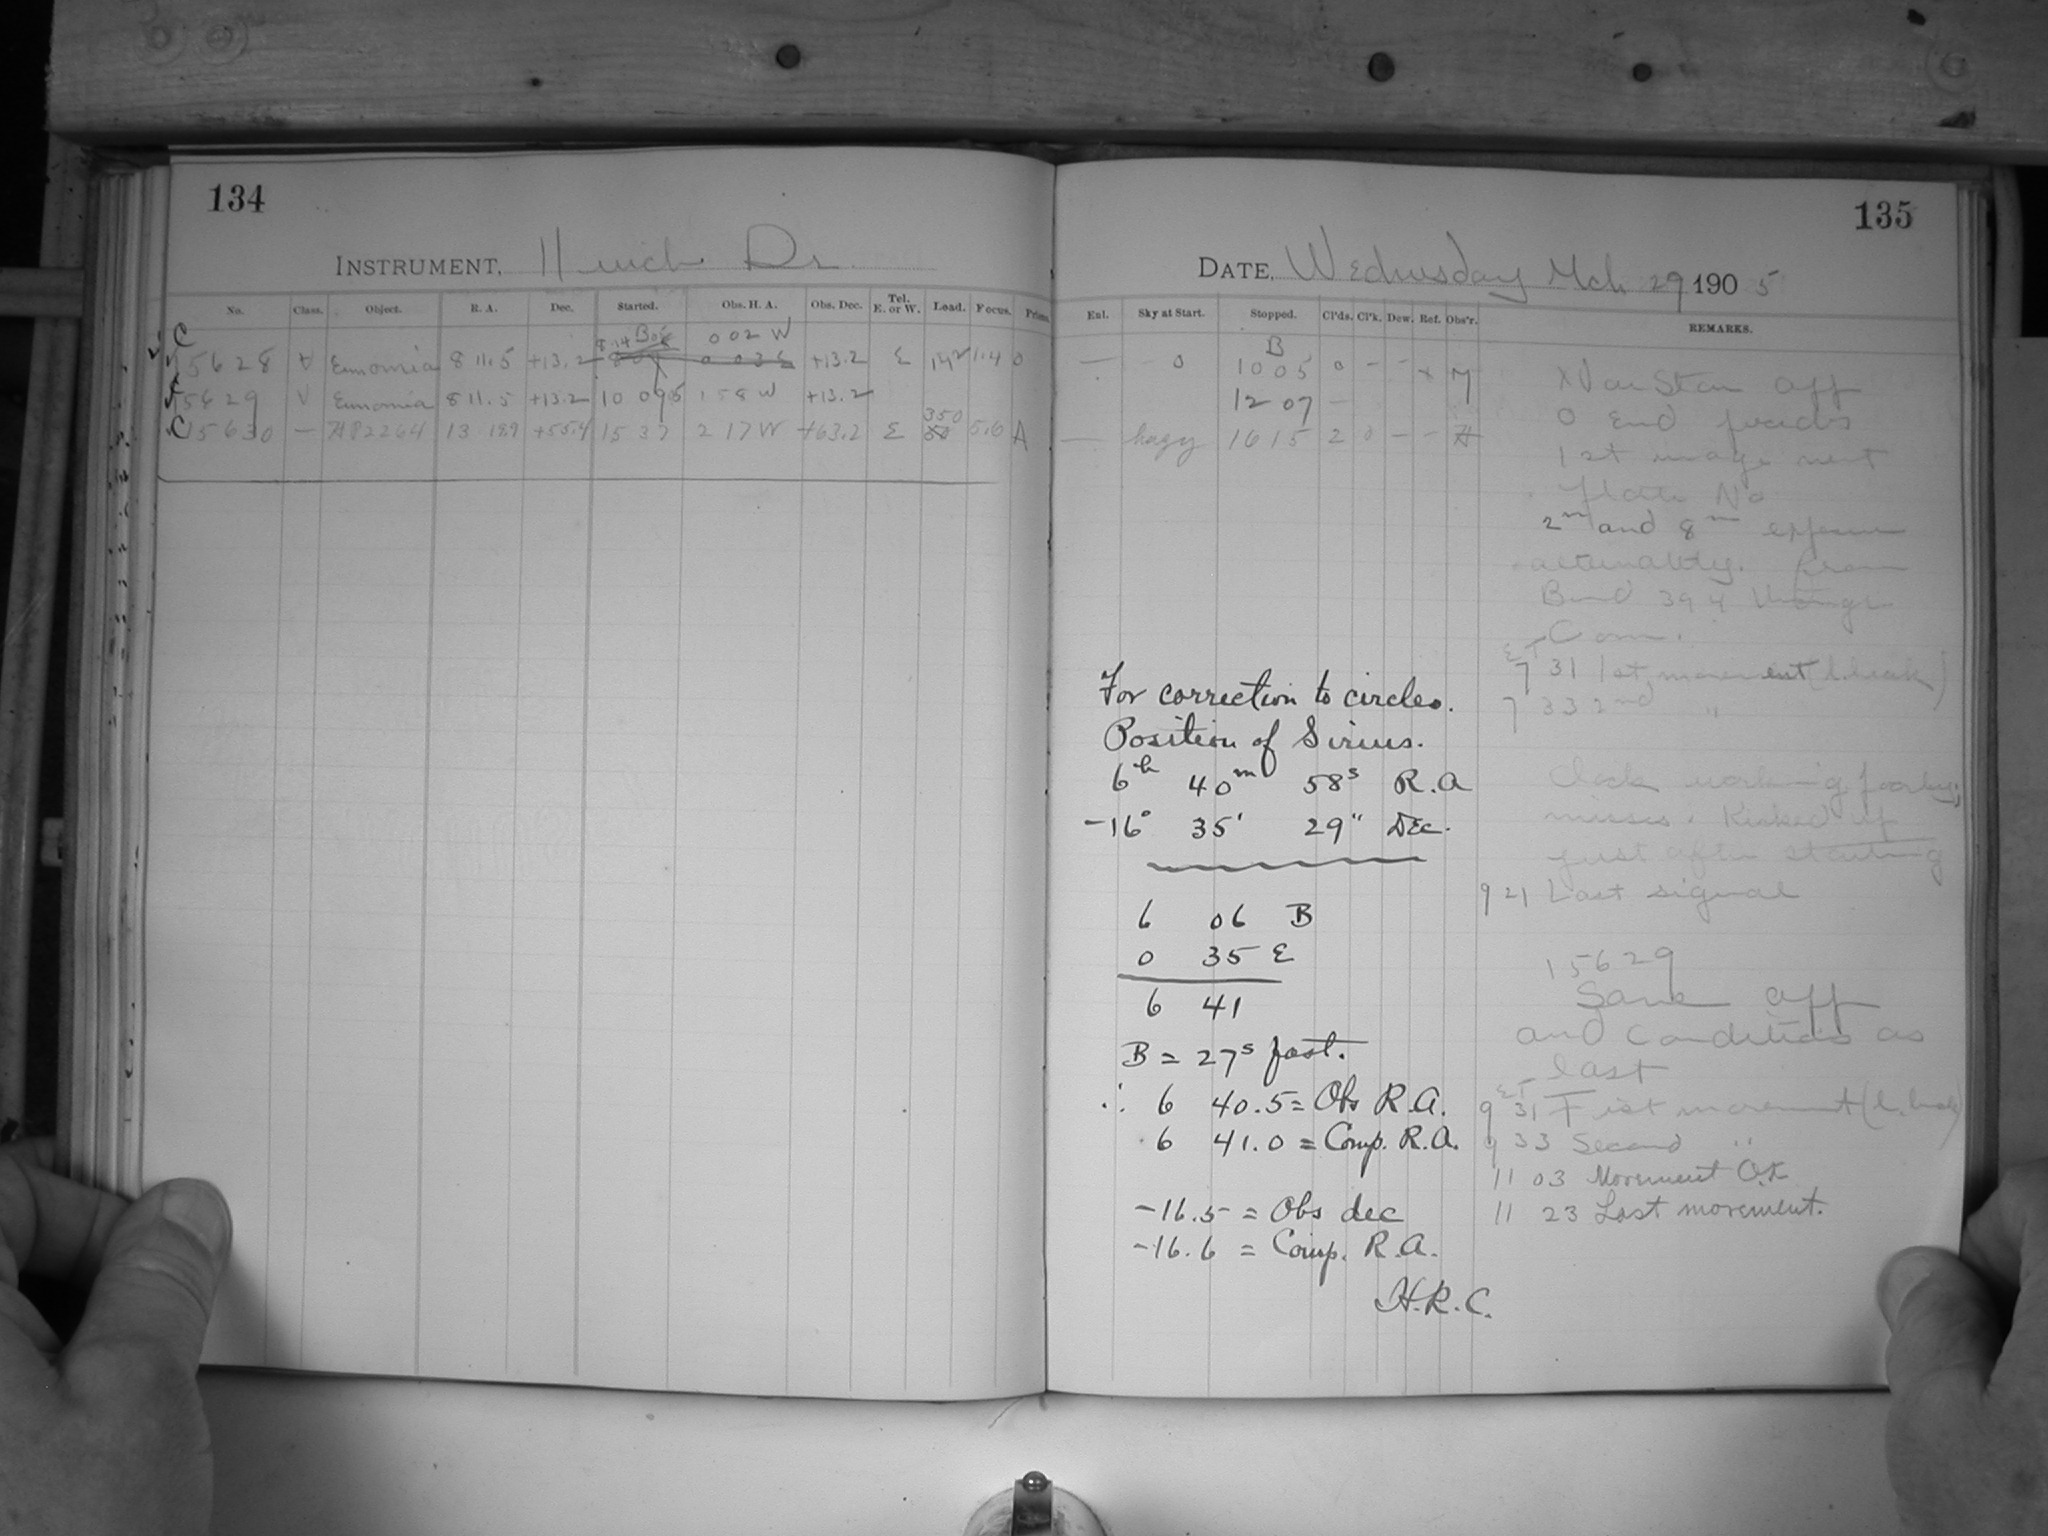 134
INSTRUMENT, 11 inch Dr.
No. Class. Object. R. A. Dec. Started. Obs. H. A. Obs. Dec. Tel. E. or W. Load. Focus. Prisms.
C 8 14 B 0 02 W
15628 Eunomia 8 11.5 +13.2 0 03 E +13.2 E 142 1.4 0
15629 V Eunomia 8 11.5 +13.2 10 09 1 58 W +13.2
350
C 15630 — 13 18.9 +55.4 15 37 2 17 W +63.2 E 50 5.6 A
135
DATE, Wednesday Mch 29 1905
Eal. Sky at Start. Stopped. Cl'ds. Cl'k. Dew. Ref. Obs'r. REMARKS.
B
— 0 10 05 0 - - x M
12 07 —
— hazy 16 15 2 0 — - H
off
0 End
1st image next
Plate No
2m and 8m
alternately. from
Bond 394
Com.
E T
7 31 1st movement
7 33 2nd "
Clock working poorly,
misses. Kicked up
just after starting
9 21 Last signal
15629
Same app
and conditions as
last
E T
9 31 First movement
9 33 Second "
11 03 Movement O.K
11 23 Last movement.
For correction to circles.
Position of Sirius.
6h 40m 58s R.A
-16° 35' 29" Dec.
6 06 B
0 35 E
6 41
B = 27s fast.
∴ 6 40.5 = Obs R.A.
6 41.0 = Comp. R.A.
-16.5 = Obs dec
-16.6 = Comp. R.A.
H.R.C.